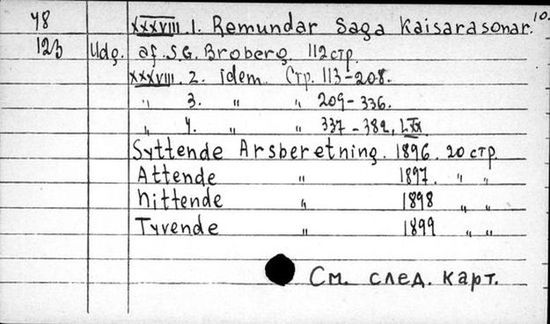 48 XXXVIII.1. Remundar Saga Kaisarasonar. 10.
123 Udg. af S.G. Broberg 112 стр.
XXXVIII. 2. idem. Стр. 113-208.
" 3. " " 209-336.
" 4. " " 337-382, LIX
Syttende Arsberetning. 1896. 20 стр.
Attende " 1897. " "
Nittende " 1898 " "
Tyvende " 1899 " "
См. след. карт.